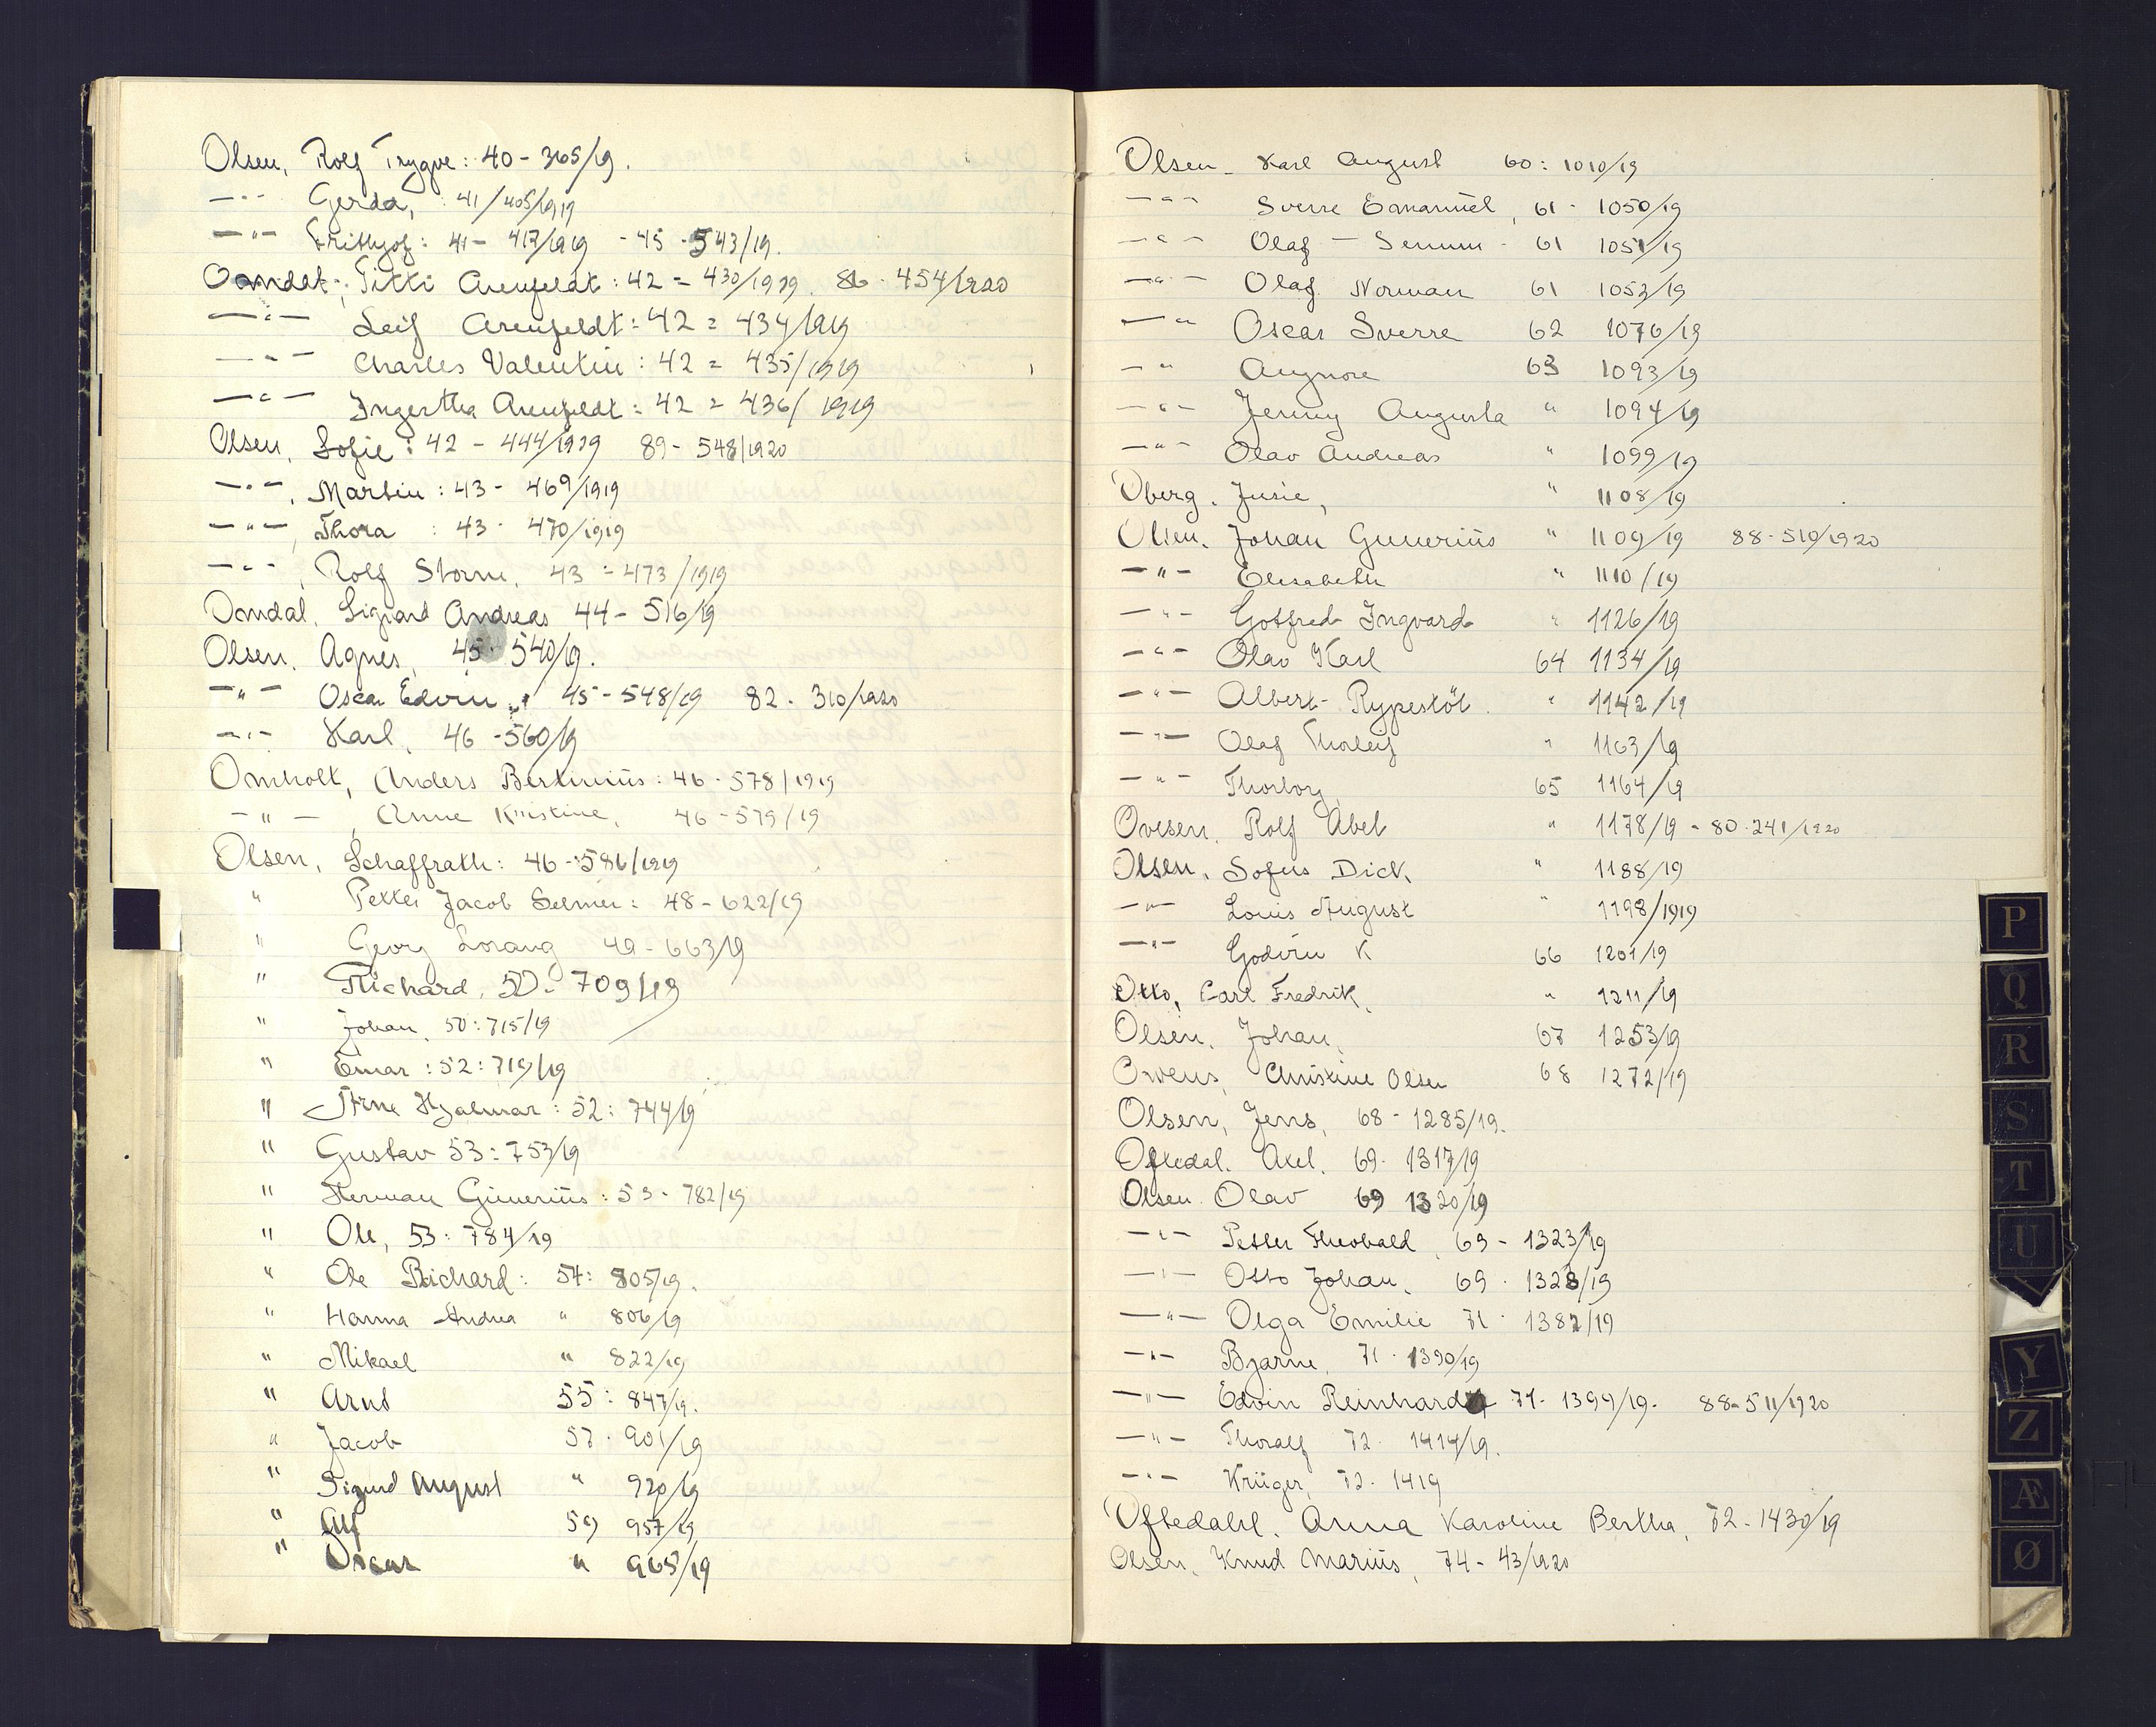 Olsen, Rolf Trygve: 40 - 365/19.
—"— Gerda, : 41/405/1919
—"— Frithjof: 41 - 417/1919 - 45 - 543/19.
Omdal, Titti Arenfeldt: 42 = 430/1919. 86 - 454/1920
—"— Leif Arenfeldt: 42 = 434/1919
—"— Charles Valentin: 42 = 435/1919
—"— Ingertha Arenfeldt: 42 = 436/1919
Olsen, Sofie: 42 - 444/1919 89 - 548/1920
—"—, Martin: 43 - 469/1919
—"—, Thora : 43 - 470/1919
—"—, Rolf Storm, 43 = 473/1919
Omdal, Sigurd Andreas 44 - 516/19
Olsen, Agnes, 45 - 540/19.
—"— Oscar Edvin, 45 - 548/19 82 - 310/1920
—"— Karl, 46 - 560/19
Omholt, Anders Bertinius: 46 - 578/1919
—"— , Anne Kristine, 46 - 579/19
Olsen, Schaffrath: 46 - 586/1919
" Petter Jacob Selmer: 48 - 622/19
" Georg Lorang 49 - 663/19
" Richard, 50 - 709/19
" Johan, 50: 715/19
" Einar: 52: 719/19
" Arne Hjalmar: 52: 744/19
" Gustav 53: 753/19
" Herman Gunerius: 53 - 782/19
" Ole, 53: 784/19
" Ole Richard: 54: 805/19.
" Hanna Andrea " 806/19
" Mikael " 822/19
" Arnt 55: 847/19.
" Jacob 57 - 901/19
" Sigurd August " 920/19
" Alf 59 957/19
" Oscar " 965/19
Olsen, Karl August 60: 1010/19
—"— Sverre Emanuel, 61 - 1050/19
—"— Olaf — Senum - 61 1051/19
—"— Olaf Norman 61 1052/19
—"— Oscar Sverre 62 1076/19
—"— Augnore 63 1093/19
—"— Jenny Augusta " 1094/19
—"— Olav Andreas " 1099/19
Oberg, Junie, " 1108/19
Olsen, Johan Gunerius " 1109/19 88 - 510/1920
—"— Elisabeth " 1110/19
—"— Gotfred Ingvard " 1126/19
—"— Olav Karl 64 1134/19
—"— Albert - Rypestöl " 1142/19
—"— Olaf Thorleif " 1163/19
—"— Thorborg 65 1164/19
Ovesen, Rolf Abel " 1178/19 - 80 - 241/1920
Olsen, Sofus Dick, " 1188/19
—"— Louis August " 1198/1919
—"— Godvin K 66 1201/19
Otto, Carl Fredrik, " 1211/19
Olsen, Johan, 67 1253/19
Owens, Christine Olsen 68 1272/19
Olsen, Jens, 68 - 1285/19.
Oftedal, Axel, 69 - 1317/19
Olsen Olav 69 1320/19
—"— Petter Theobald, 69 - 1323/19
—"— Otto Johan, 69 - 1328/19
—"— Olga Emilie 71 - 1382/19
—"— Bjarne, 71 - 1390/19
—"— Edvin Reinhard 71 - 1399/19. 88 - 511/1920
—"— Thoralf 72 - 1414/19.
—"— Krüger, 72 - 1419
Oftedahl, Anna Karoline Bertha, 72 - 1430/19
Olsen, Knud Marius, 74 - 43/1920
P
Q
R
S
T
U
Y
Z
Æ
Ø